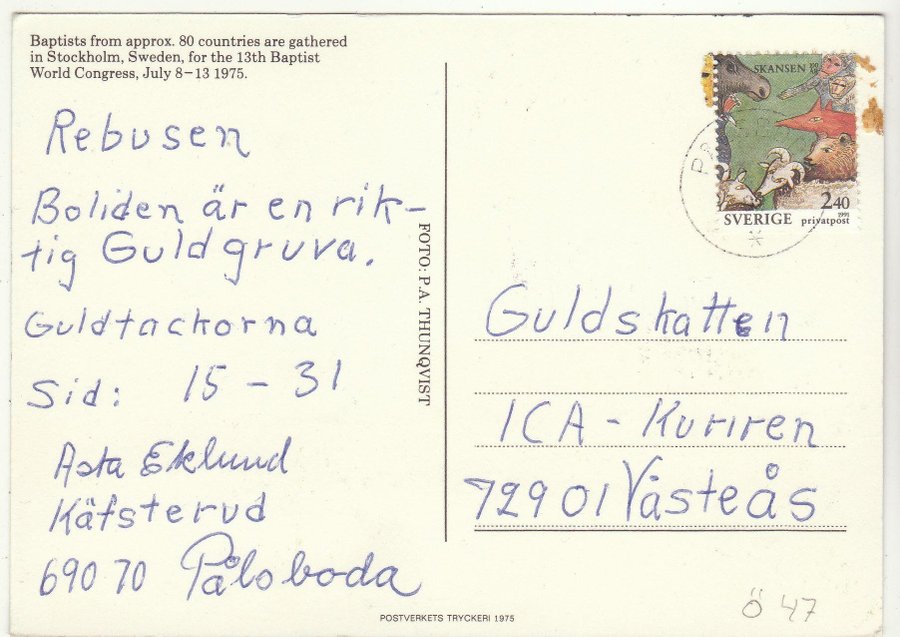 Baptists from approx. 80 countries are gathered
in Stockholm, Sweden, for the 13th Baptist
World Congress, July 8–13 1975.
Rebusen
Boliden är en rik-
tig Guldgruva.
Guldtackorna
Sid: 15 - 31
Asta Eklund
Käfsterud
690 70 Påloboda
FOTO: P.A. THUNQVIST
SKANSEN
2.40
SVERIGE 1991
privatpost
Guldskatten
ICA - Kuriren
729 01 Västeås
POSTVERKETS TRYCKERI 1975
Ö 47